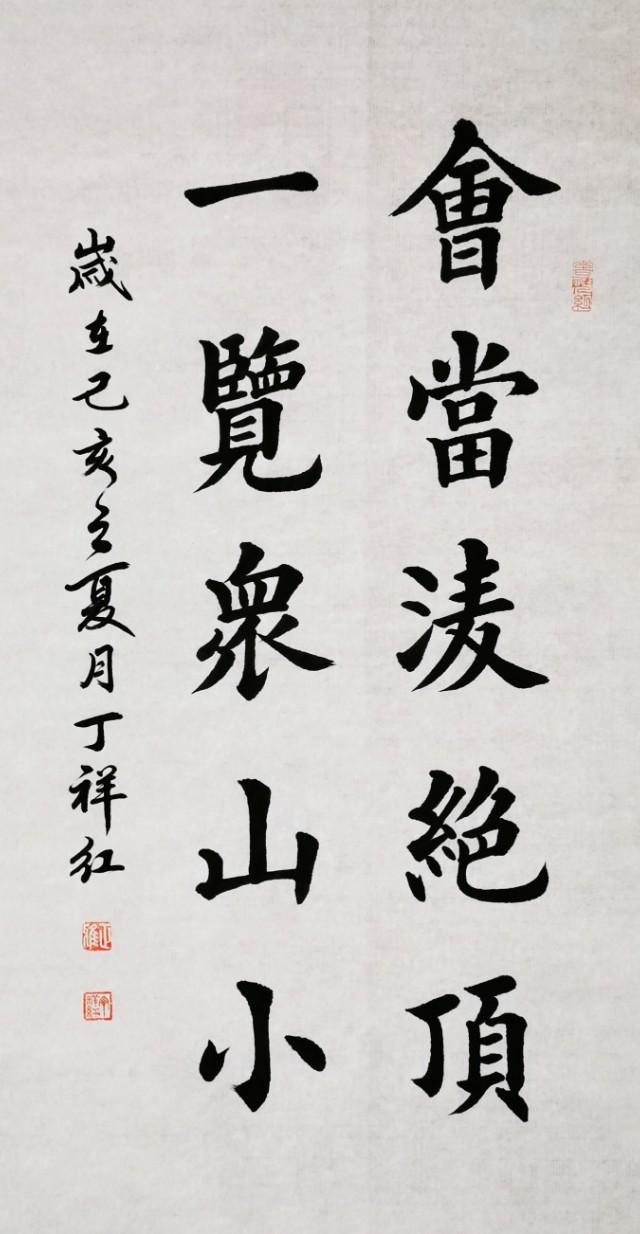 會當淩絶頂
一覽衆山小
歲在己亥之夏月丁祥红